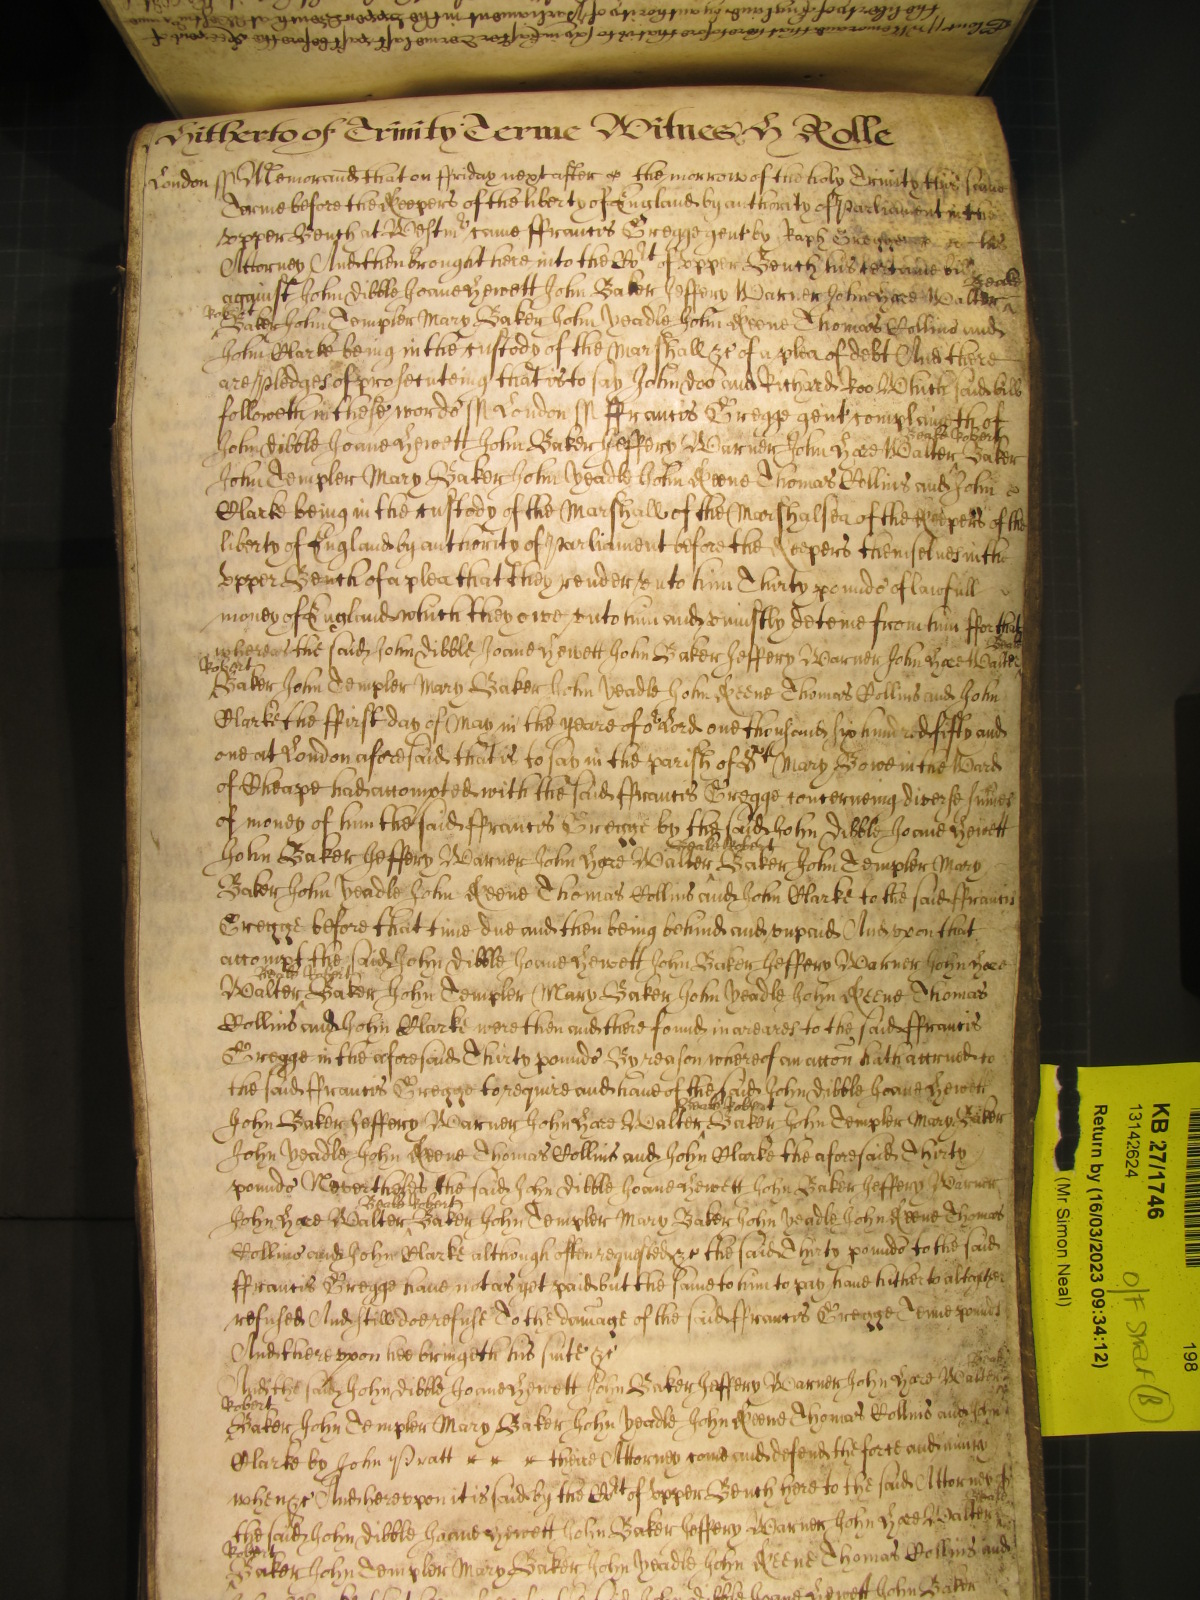 Hitherto of Trinity Terme Witnes H Rolle
London ss Memorand that on ffriday next after the morrow of the holy Trinity this same
Terme before the Keepers of the liberty of England by authority of Parliament in the
upper Bench at Westmr came ffrancis Gregge gent by Raph his
Attorney And then brought here into the Cort of upper Bench his certaine bill
Beale
against John Dibble Joane Hewett John Baker Jeffery Warner John Hore Walter
Robert
Baker John Templer Mary Baker John Peadle John Keene Thomas Collins and
John Clarke being in the custody of the Marshall &c of a plea of debt And there
are pledges of prosecuteing that is to say John Doo and Richard Roo Which said bill
followeth in these words ss London ss ffrancis Gregge gent complaineth of
Beale Robert
John Dibble Joane Hewett John Baker Jeffery Warner John Hore Walter Baker
John Templer Mary Baker John Peadle John Keene Thomas Collins and John
Clarke being in the custody of the Marshall of the Marshalsea of the Keepers of the
liberty of England by authority of Parliament before the Keepers themselves in the
upper Bench of a plea that they render unto him Thirty pounds of lawfull
money of England which they owe unto him and uniustly deteine from him ffor that
whereas the said John Dibble Joane Hewett John Baker Jeffery Warner John Hore Walter
Beale
Robert
Baker John Templer Mary Baker John Peadle John Keene Thomas Collins and John
Clarke the ffirst day of May in the yeare of or Lord one thousand six hundred fifty and
one at London aforesaid that is to say in the parish of St Mary Bowe in the Ward
of Cheape had accompted with the said ffrancis Gregge concerneing diverse sumes
of money of him the said ffrancis Gregge by the said John Dibble Joane Hewett
Beale Robert
John Baker Jeffery Warner John Hore Walter Baker John Templer Mary
Baker John Peadle John Keene Thomas Collins and John Clarke to the said ffrancis
Gregge before that time due and then being behind and unpaid And upon that
accompt the said John Dibble Joane Hewett John Baker Jeffery Warner John Hore
Beale Robert
Walter Baker John Templer Mary Baker John Peadle John Keene Thomas
Collins and John Clarke were then and there found in areares to the said ffrancis
Gregge in the aforesaid Thirty pounds By reason whereof an accon hath accrued to
the said ffrancis Gregge to require and have of the said John Dibble Joane Hewett
Beale Robert
John Baker Jeffery Warner John Hore Walter Baker John Templer Mary Baker
John Peadle John Keene Thomas Collins and John Clarke the aforesaid Thirty
pounds Neverthelesse the said John Dibble Joane Hewett John Baker Jeffery Warner
Beale Robert
John Hore Walter Baker John Templer Mary Baker John Peadle John Keene Thomas
Collins and John Clarke although often requested &c the said Thirty pounds to the said
ffrancis Gregge have not as yet paid but the same to him to pay have hitherto altogether
refused And still doe refuse To the damage of the said ffrancis Gregge Tenne pounds
And thereupon hee bringeth his suite &c
Beale
And the said John Dibble Joane Hewett John Baker Jeffery Warner John Hore Walter
Robert
Baker John Templer Mary Baker John Peadle John Keene Thomas Collins and John
Clarke by John Pratt their Attorney come and defend the force and iniury
when &c And hereupon it is said by the Cort of upper Bench here to the said Attorney
Beale
the said John Dibble Joane Hewett John Baker Jeffery Warner John Hore Walter
Robert
Baker John Templer Mary Baker John Peadle John Keene Thomas Collins and
John Dibble Joane Hewett John Baker
KB 27/1746
13142624
Return by (16/03/2023 09:34:12)
(Mr Simon Neal)
198